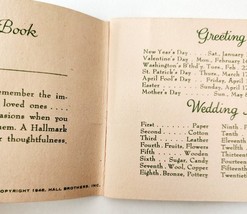 Book
remember the im-
loved ones ....
ssions when you
em. A Hallmark
thoughtfulness,
COPYRIGHT 1948, HALL BROTHERS, INC.
Greeting
New Year's Day .. Sat., January
Valentine's Day . Mon., February 1
Washington's B'thd'y, Tues., Feb. 22
St. Patrick's Day Thurs., March 1
April Fool's Day . Friday, April
Easter . . Sunday, April 17
Mother's Day . Sun., May
Wedding
First . . . Paper
Second . . Cotton
Third . . Leather
Fourth, Fruits, Flowers
Fifth . . Wooden
Sixth . Sugar, Candy
Seventh, Wool, Copper
Eighth, Bronze, Pottery
Ninth
Tenth
Eleventh
Twelfth
Thirteenth
Fourteenth
Fifteenth
Twentieth